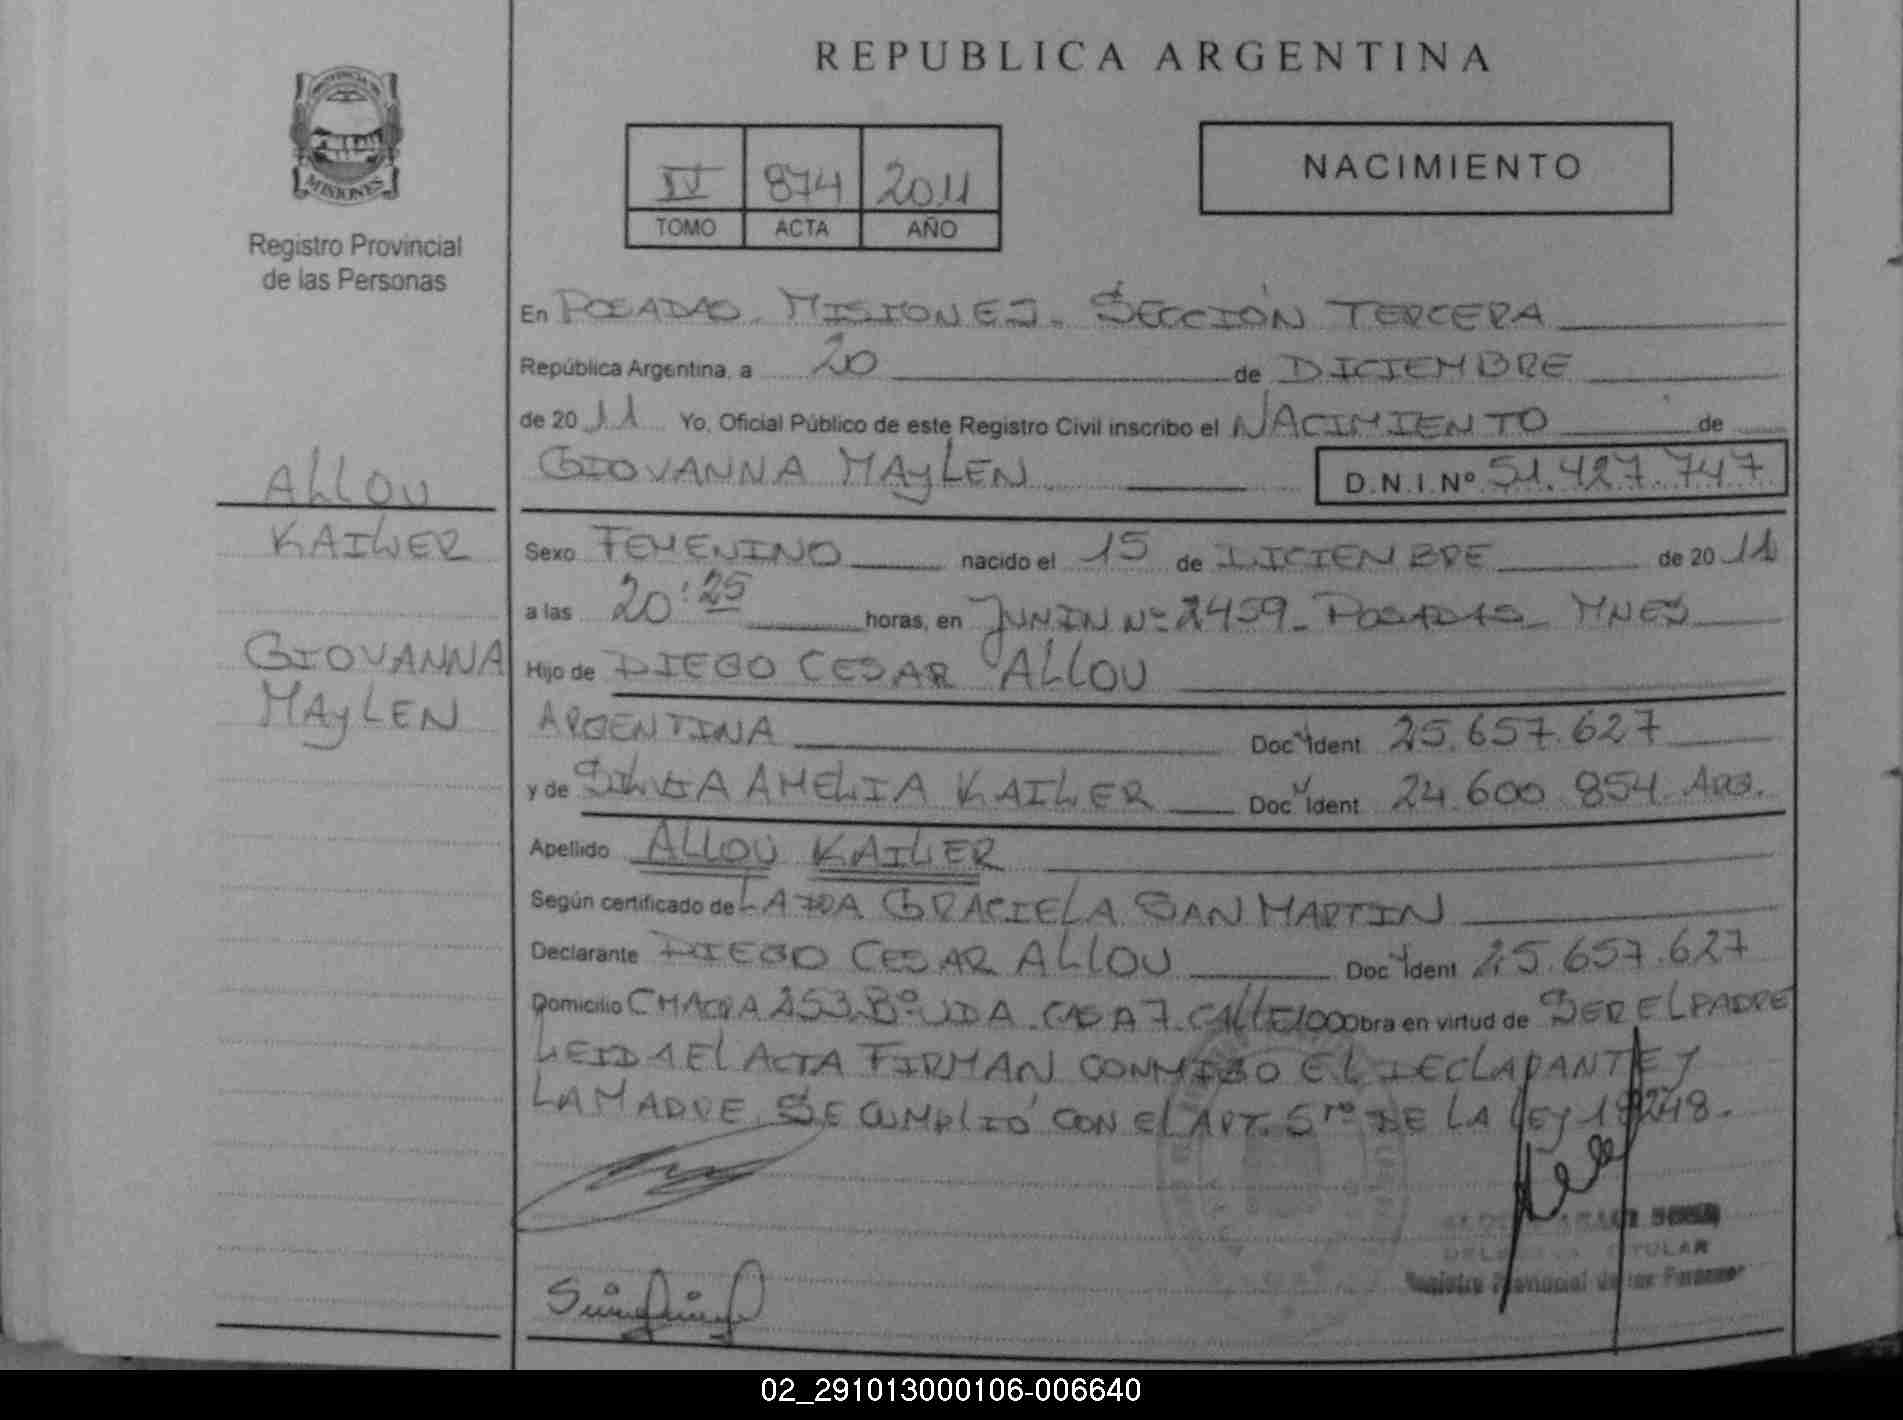 REPUBLICA ARGENTINA
PROVINCIA DE
MISIONES
Registro Provincial
de las Personas
IV 874 2011
TOMO ACTA AÑO
NACIMIENTO
En POSADAS. MISIONES. SECCIÓN TERCERA
República Argentina, a 20 de DICIEMBRE
de 20 11 Yo, Oficial Público de este Registro Civil inscribo el NACIMIENTO de
GIOVANNA MAYLEN D.N.I.Nº 51.427.747
ALLOU
KAILER
GIOVANNA
MAYLEN
Sexo FEMENINO nacido el 15 de DICIEMBRE de 20 11
a las 20:25 horas, en JUNIN Nº 2459 - POSADAS - MNES
Hijo de DIEGO CESAR ALLOU
ARGENTINA Doc Ident 25.657.627
y de SILVIA AMELIA KAILER Doc Ident 24.600.854 ARG.
Apellido ALLOU KAILER
Según certificado de LA DRA GRACIELA SAN MARTIN
Declarante DIEGO CESAR ALLOU Doc Ident 25.657.627
Domicilio CHACRA 253. Bº UDA. CASA 7. CALLE 1000 bra en virtud de SER EL PADRE
LEIDA EL ACTA FIRMAN CONMIGO EL DECLARANTE Y
LA MADRE. SE CUMPLIÓ CON EL ART. 5ro DE LA LEY 18248.
TITULAR
Registro Provincial de las Personas
02_291013000106-006640